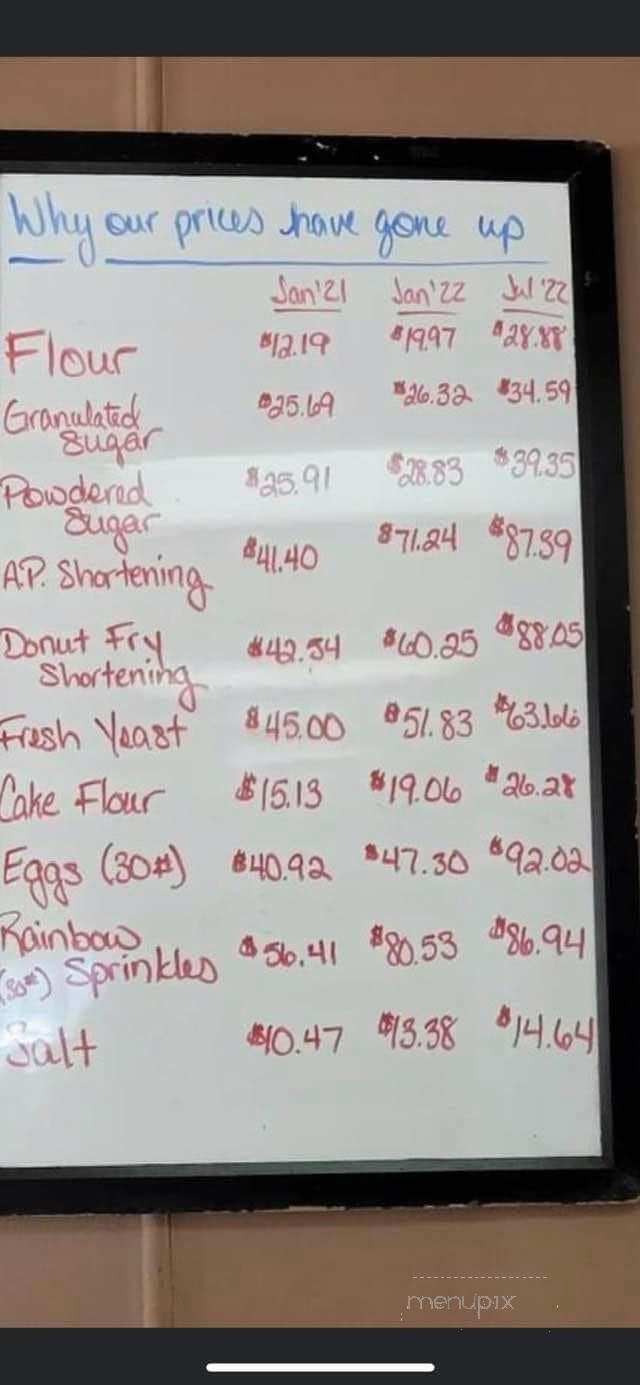 Why our prices have gone up
Jan'21 Jan'22 Jul'22
Flour $12.19 $19.97 $28.88
Granulated Sugar $25.69 $26.32 $34.59
Powdered Sugar $25.91 $28.83 $39.35
A.P. Shortening $41.40 $71.24 $87.39
Donut Fry Shortening $42.54 $60.25 $88.05
Fresh Yeast $45.00 $51.83 $63.66
Cake Flour $15.13 $19.06 $26.28
Eggs (30#) $40.92 $47.30 $92.02
Rainbow Sprinkles $56.41 $80.53 $86.94
Salt $10.47 $13.38 $14.64
menupix